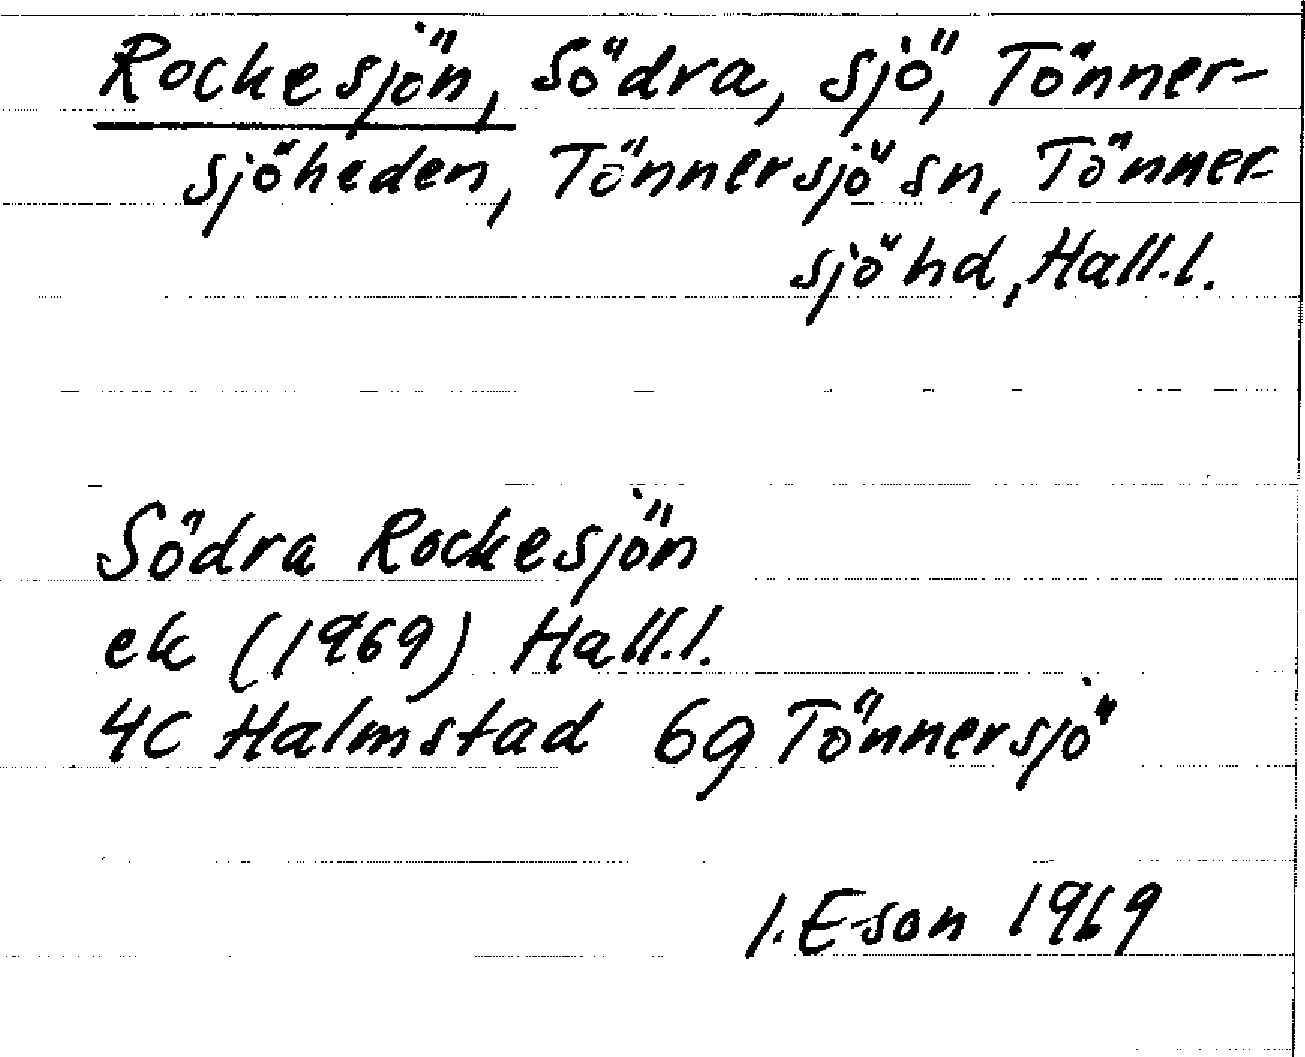 Rockesjön, Södra, sjö, Tönner-
sjöheden, Tönnersjö sn, Tönner-
sjö hd, Hall.l.
Södra Rockesjön
ek (1969) Hall.l.
4C Halmstad 6g Tönnersjö
I. E-son 1969